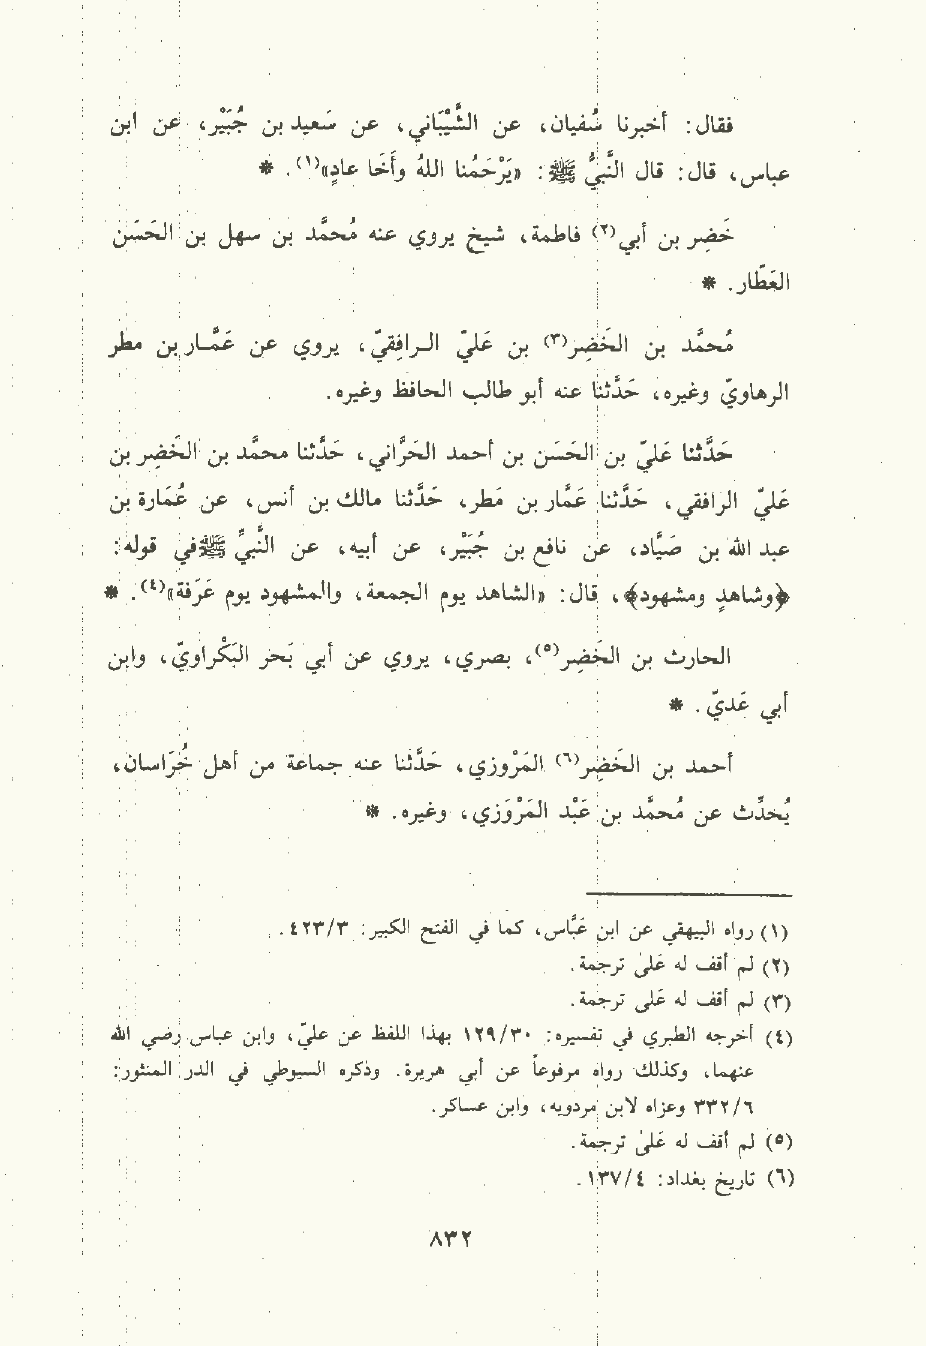 فقال: أخبرنا سُفيان، عن الشَّيْبَاني، عن سَعيد بن جُبَيْر، عن ابن
عباس، قال: قال النَّبيُّ ﷺ: «يَرْحَمُنا اللهُ وأَخَا عادٍ»(١). *
خَضِر بن أبي(٢) فاطمة، شيخ يروي عنه مُحمَّد بن سهل بن الحَسَن
العَطَّار. *
مُحمَّد بن الخَضِر(٣) بن عَليّ الرافِقيّ، يروي عن عَمَّار بن مطر
الرهاويّ وغيره، حَدَّثنا عنه أبو طالب الحافظ وغيره.
حَدَّثنا عَليّ بن الحَسَن بن أحمد الحَرَّاني، حَدَّثنا محمَّد بن الخَضِر بن
عَليّ الرافقي، حَدَّثنا عَمَّار بن مَطر، حَدَّثنا مالك بن أنس، عن عُمَارة بن
عبد الله بن صَيَّاد، عن نافع بن جُبَيْر، عن أبيه، عن النَّبيِّ ﷺ في قوله:
﴿وشاهدٍ ومشهود﴾، قال: «الشاهد يوم الجمعة، والمشهود يوم عَرَفة»(٤). *
الحارث بن الخَضِر(٥)، بصري، يروي عن أبي بَحر البَكْراويّ، وابن
أبي عَديّ. *
أحمد بن الخَضِر(٦) المَرْوزي، حَدَّثنا عنه جماعة من أهل خُرَاسان،
يُحَدِّث عن مُحمَّد بن عَبْد المَرْوَزي، وغيره. *
(١) رواه البيهقي عن ابن عَبَّاس، كما في الفتح الكبير: ٤٢٣/٣.
(٢) لم أقف له عَلىٰ ترجمة.
(٣) لم أقف له عَلى ترجمة.
(٤) أخرجه الطبري في تفسيره: ١٢٩/٣٠ بهذا اللفظ عن عليّ، وابن عباس رضي الله
عنهما، وكذلك رواه مرفوعاً عن أبي هريرة. وذكره السيوطي في الدر المنثور:
٣٣٢/٦ وعزاه لابن مردويه، وابن عساكر.
(٥) لم أقف له عَلىٰ ترجمة.
(٦) تاريخ بغداد: ١٣٧/٤.
٨٣٢